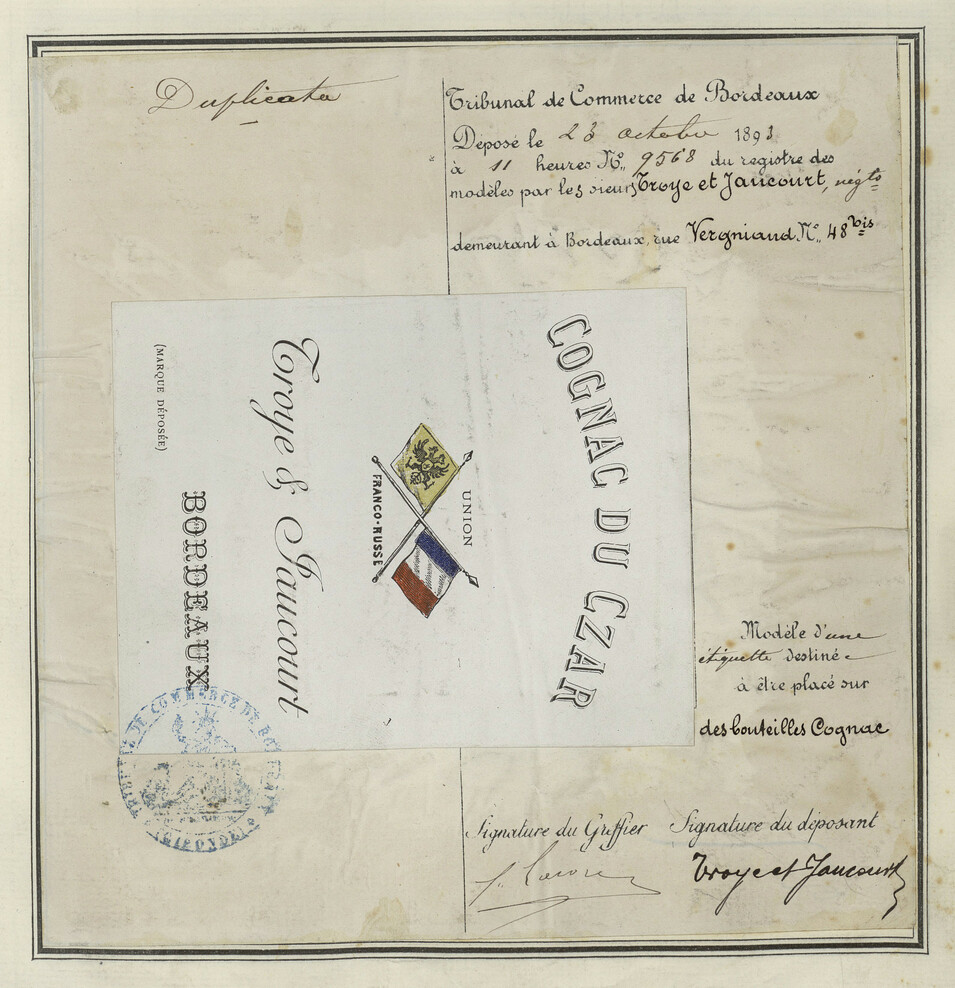 Duplicata
Tribunal de Commerce de Bordeaux
Déposé le 23 octobre 1893
à 11 heures N° 9568 du registre des
modèles par les sieurs Troye et Jaucourt, négts
demeurant à Bordeaux, rue Vergniaud N° 48 bis
COGNAC DU CZAR
UNION
FRANCO-RUSSE
Troye & Jaucourt
BORDEAUX
(MARQUE DÉPOSÉE)
Modèle d'une
étiquette destinée
à être placé sur
des bouteilles Cognac
TRIBUNAL DE COMMERCE DE BORDEAUX
(GIRONDE)
Signature du Greffier Signature du déposant
Troye et Jaucourt